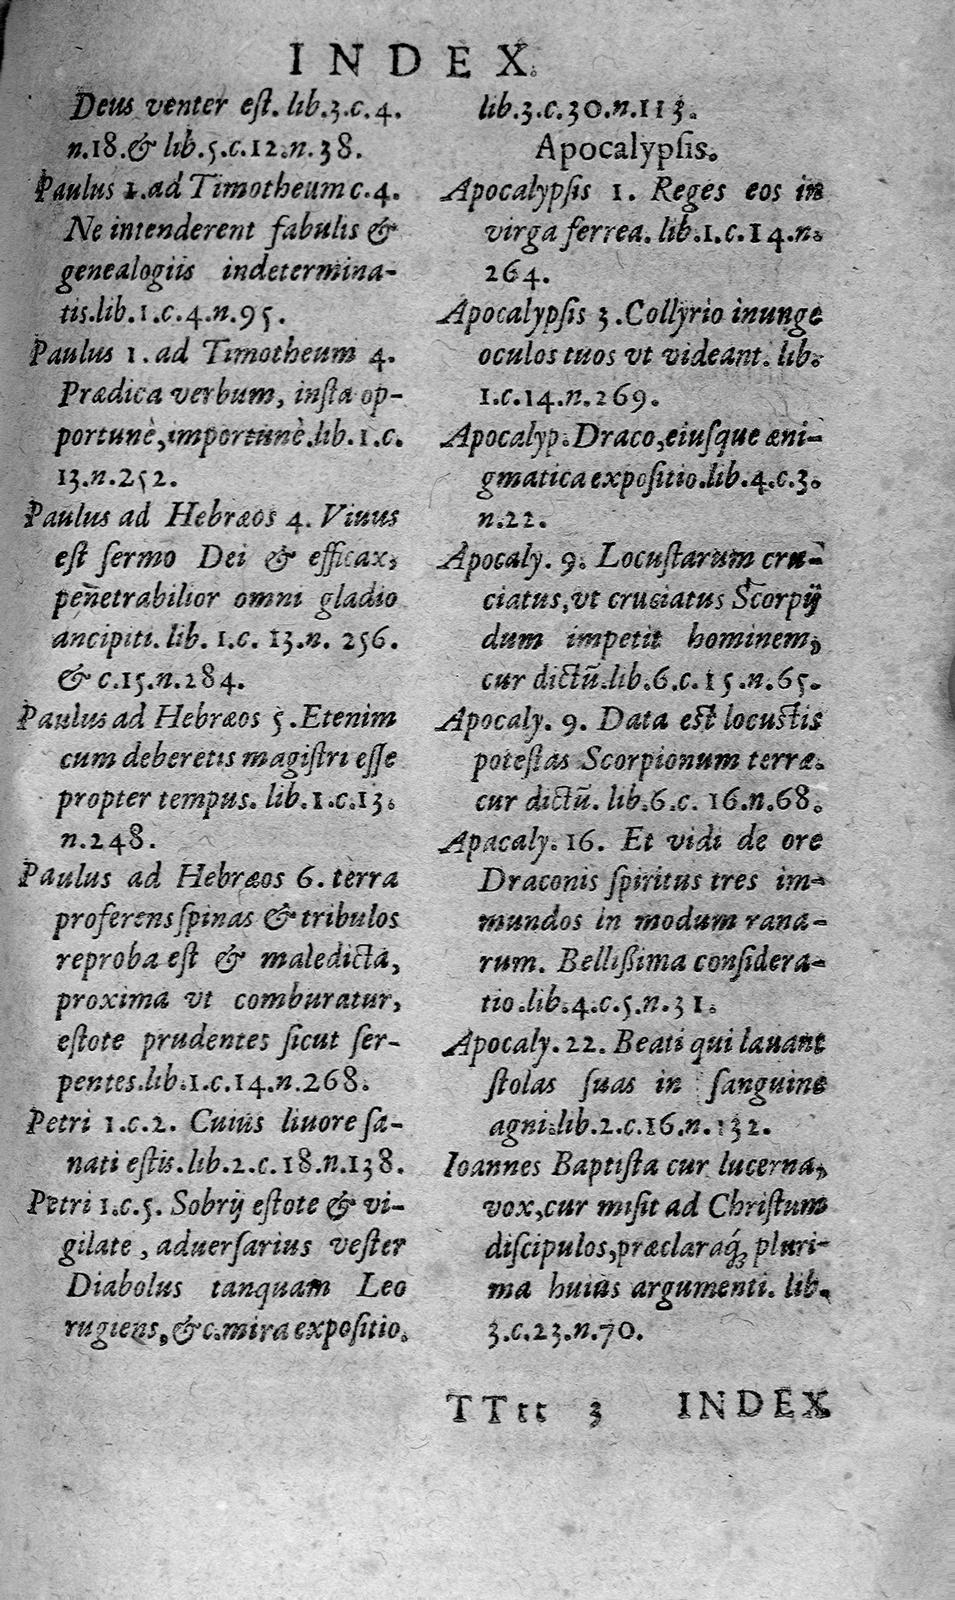 INDEX.
Deus venter eſt. lib.3.c.4.
n.18.& lib.5.c.12.n.38.
Paulus 1.ad Timotheum c.4.
Ne intenderent fabulis &
genealogiis indetermina-
tis.lib.1.c.4.n.95.
Paulus 1. ad Timotheum 4.
Prædica verbum, inſta op-
portunè,importunè.lib.1.c.
13.n.252.
Paulus ad Hebræos 4. Viuus
eſt ſermo Dei & efficax,
peñetrabilior omni gladio
ancipiti. lib. 1.c. 13.n. 256.
& c.15.n.284.
Paulus ad Hebræos 5.Etenim
cum deberetis magiſtri eſſe
propter tempus. lib.1.c.13.
n.248.
Paulus ad Hebræos 6. terra
proferens ſpinas & tribulos
reproba eſt & maledicta,
proxima vt comburatur,
eſtote prudentes ſicut ſer-
pentes.lib.1.c.14.n.268.
Petri 1.c.2. Cuius liuore ſa-
nati eſtis.lib.2.c.18.n.138.
Petri 1.c.5. Sobrij eſtote & vi-
gilate, aduerſarius veſter
Diabolus tanquam Leo
rugiens,&c.mira expoſitio.
lib.3.c.30.n.113.
Apocalypſis.
Apocalypſis 1. Reges eos in
virga ferrea. lib.1.c.14.n.
264.
Apocalypſis 3.Collyrio inunge
oculos tuos vt videant. lib.
1.c.14.n.269.
Apocalyp.Draco,eiuſque æni-
gmatica expoſitio.lib.4.c.3.
n.22.
Apocaly. 9. Locuſtarum cru-
ciatus,vt cruciatus Scorpij
dum impetit hominem,
cur dictũ.lib.6.c.15.n.65.
Apocaly. 9. Data eſt locuſtis
poteſtas Scorpionum terræ.
cur dictũ. lib.6.c. 16.n.68.
Apacaly. 16. Et vidi de ore
Draconis ſpiritus tres im-
mundos in modum rana-
rum. Belliſsima conſidera-
tio.lib.4.c.5.n.31.
Apocaly.22. Beati qui lauant
ſtolas ſuas in ſanguine
agni.lib.2.c.16.n.132.
Ioannes Baptiſta cur lucerna,
vox,cur miſit ad Chriſtum
diſcipulos,præclaraq́; pluri-
ma huius argumenti. lib.
3.c.23.n.70.
TTtt 3 INDEX